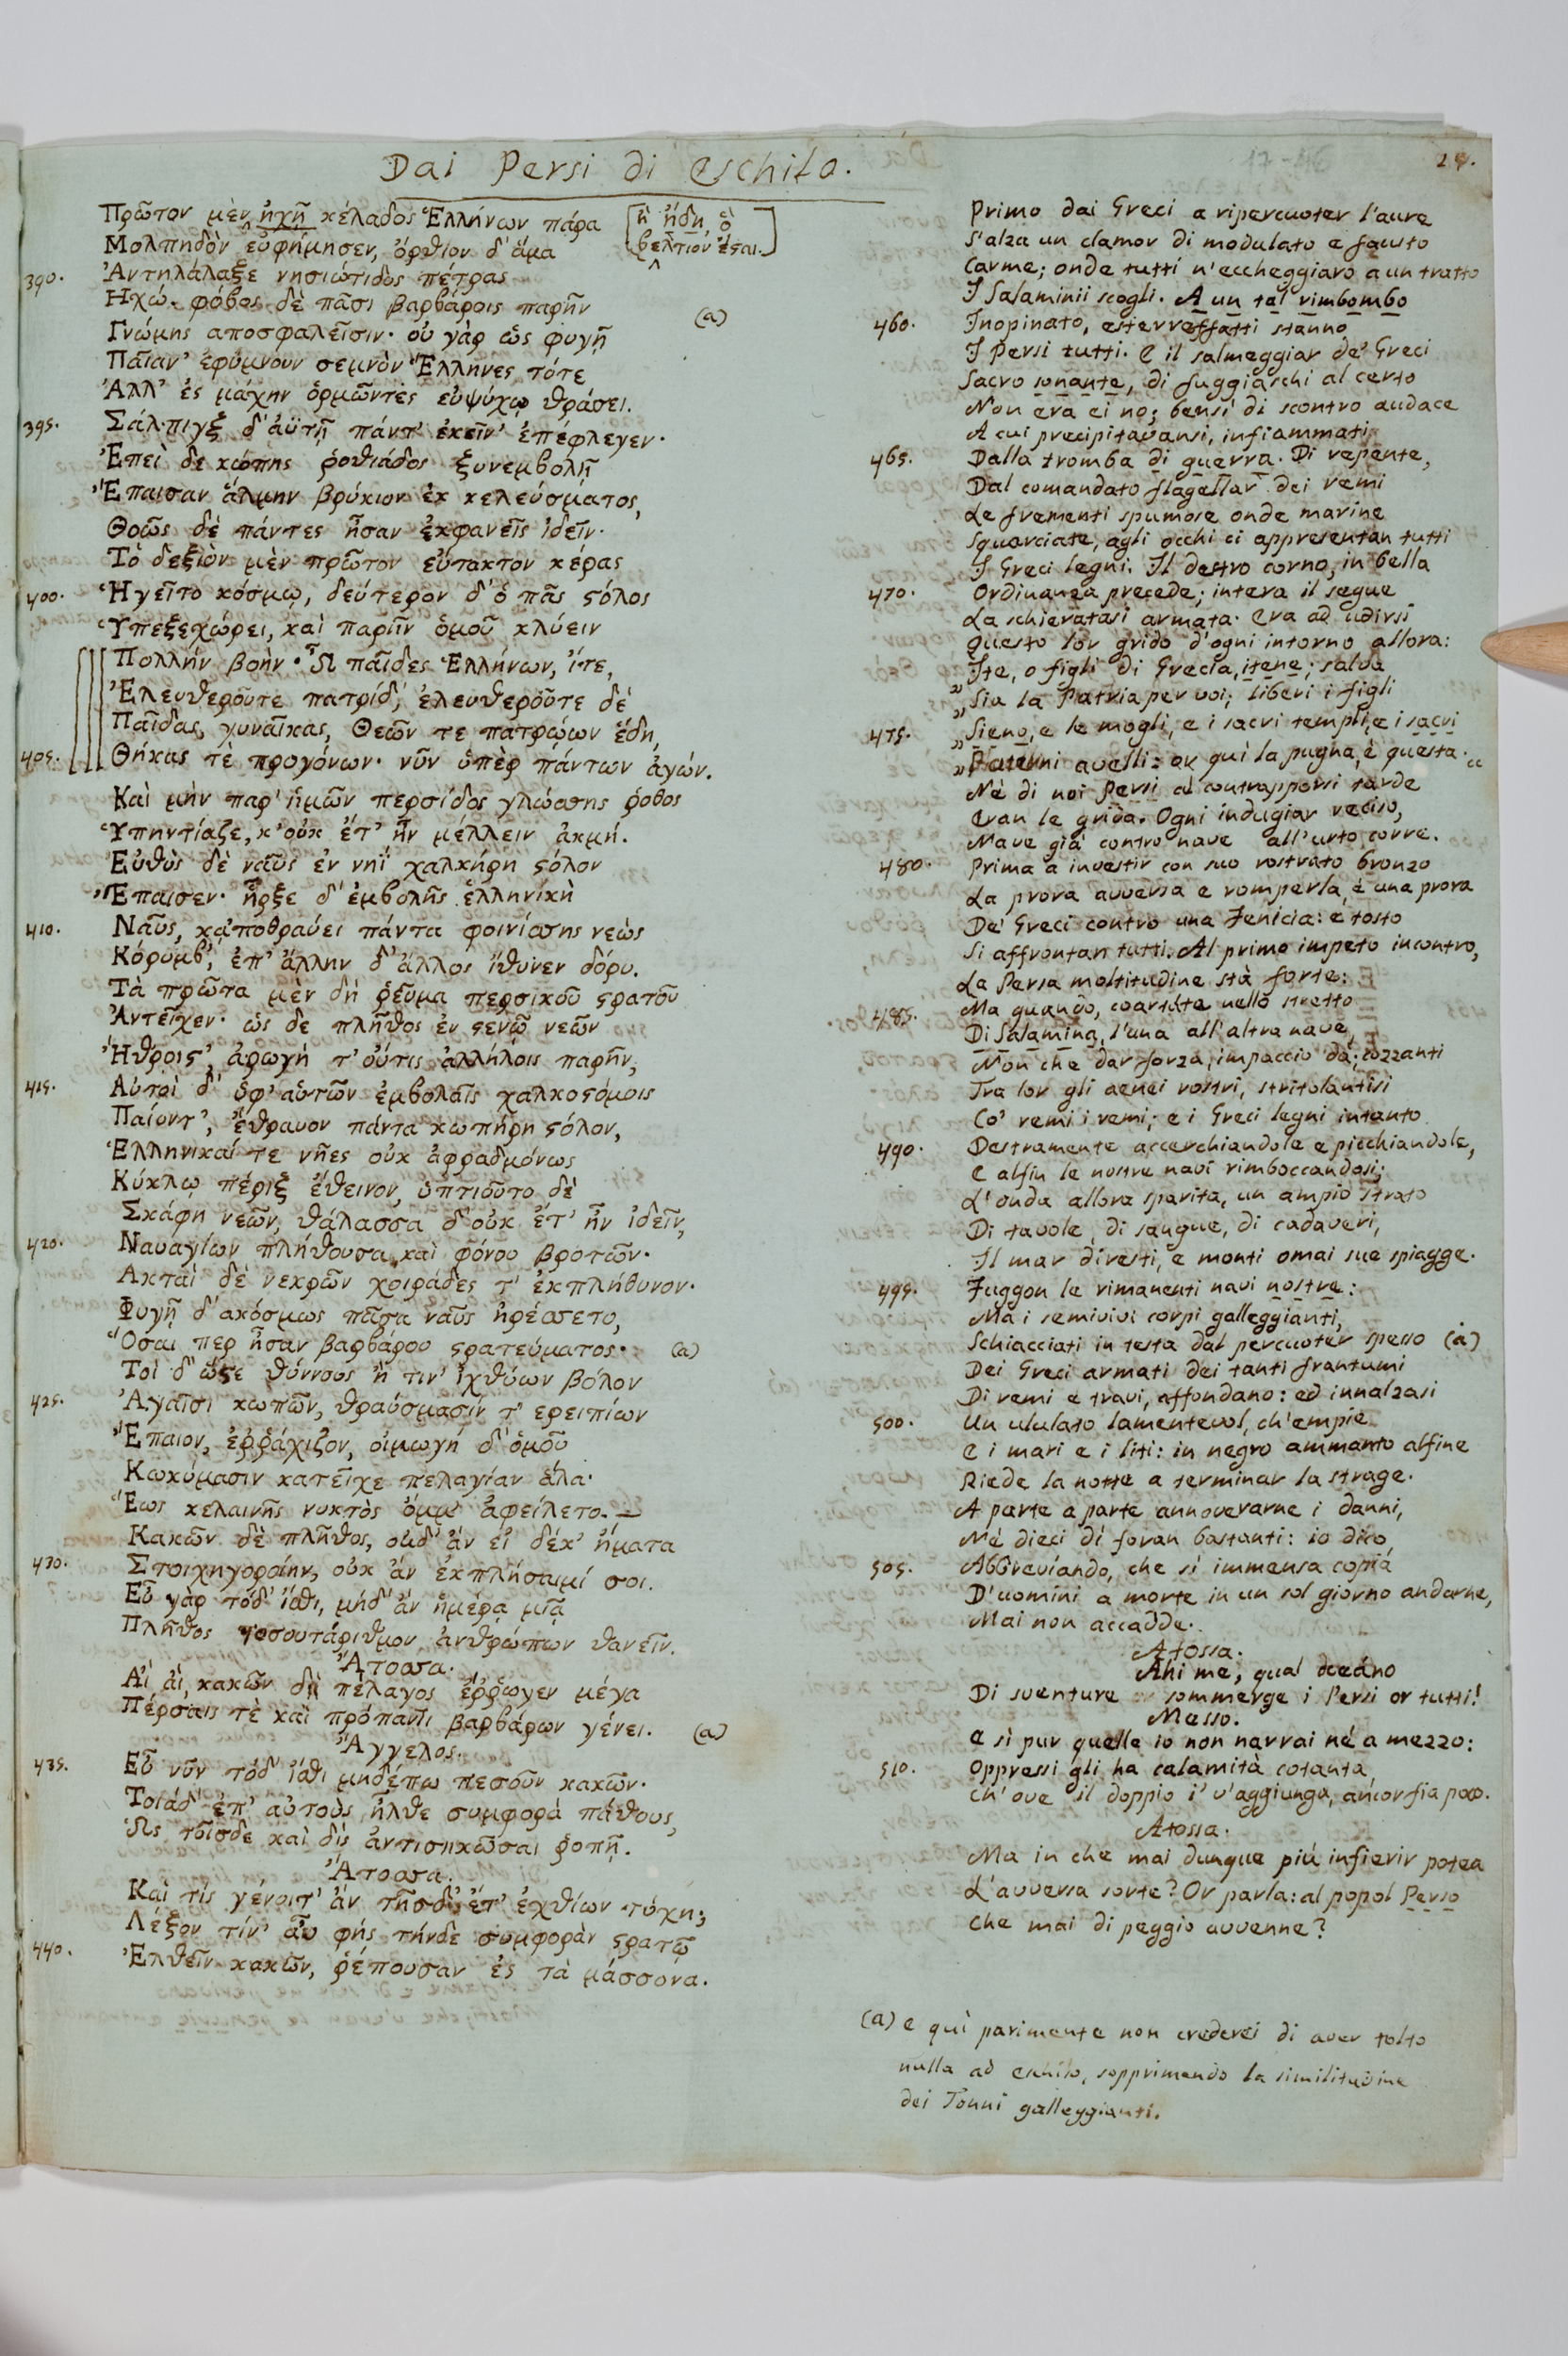 Dai Persi di Eschilo.
29.
Πρῶτον μὲν ἠχῇ κέλαδος Ἑλλήνων πάρα
[ἢ ἤδη, ὃ
βέλτιον ἔςαι.]
Μολπηδὸν εὐφήμησεν, ὄρθιον δ' ἅμα
390. Ἀντηλάλαξε νησιώτιδος πέτρας
Ἠχώ· φόβος δὲ πᾶσι βαρβάροις παρῆν
(a)
Γνώμης αποσφαλεῖσιν· οὐ γὰρ ὡς φυγῇ
Παῖαν' ἐφύμνουν σεμνὸν Ἕλληνες τότε
Ἀλλ' ἐς μάχην ὁρμῶντες εὐψύχῳ θράσει.
395. Σάλπιγξ δ' ἀϋτῇ πάντ' ἐκεῖν' ἐπέφλεγεν·
Ἐπεὶ δε κώπης ῥοθιάδος ξυνεμβολῇ
Ἔπαισαν ἅλμην βρύκιον ἐκ κελεύσματος,
Θοῶς δὲ πάντες ἦσαν ἐκφανεῖς ἰδεῖν·
Τὸ δεξιὸν μὲν πρῶτον εὔτακτον κέρας
400. Ἡγεῖτο κόσμῳ, δεύτερον δ' ὁ πᾶς ςόλος
Ὑπεξεχώρει, καὶ παρῆν ὁμοῦ κλύειν
Πολλὴν βοὴν· Ὦ παῖδες Ἑλλήνων, ἴτε,
Ἐλευθεροῦτε πατρίδ', ἐλευθεροῦτε δὲ
Παῖδας, γυναῖκας, Θεῶν τε πατρῴων ἕδη,
405. Θήκας τὲ προγόνων· νῦν ὑπὲρ πάντων ἀγών.
Καὶ μὴν παρ' ἡμῶν περσίδος γλώσσης ῥόθος
Ὑπηντίαζε, κ' οὐκ ἔτ' ἦν μέλλειν ἀκμή.
Εὐθὺς δὲ ναῦς ἐν νηῒ χαλκήρη ςόλον
Ἔπαισεν· ἦρξε δ' ἐμβολῆς ἑλληνικὴ
410. Ναῦς, κἀποθραύει πάντα φοινίσσης νεὼς
Κόρυμβ', ἐπ' ἄλλην δ' ἄλλος ἴθυνεν δόρυ.
Τὰ πρῶτα μὲν δὴ ῥεῦμα περσικοῦ ςρατοῦ
Ἀντεῖχεν· ὡς δε πλῆθος ἐν ςενῷ νεῶν
Ἤθροιςʹ, ἀρωγὴ τ' οὔτις ἀλλήλοις παρῆν,
415. Αὐτοὶ δ' ὑφ' αὑτῶν ἐμβολαῖς χαλκοςόμοις
Παίοντ', ἔθραυον πάντα κωπήρη ςόλον,
Ἑλληνικαί τε νῆες οὐκ ἀφραδμόνως
Κύκλῳ πέριξ ἔθεινον, ὑπτιοῦτο δὲ
Σκάφη νεῶν, θάλασσα δ' οὐκ ἔτ' ἦν ἰδεῖν,
420. Ναυαγίων πλήθουσα καὶ φόνου βροτῶν·
Ακταὶ δὲ νεκρῶν χοιράδες τ' ἐκπλήθυνον·
Φυγῇ δ' ακόσμως πᾶσα ναῦς ἠρέσσετο,
Ὅσαι περ ἦσαν βαρβάρου ςρατεύματος·
(a)
Τοὶ δ' ὥςε θύννους ἢ τιν' ἰχθύων βόλον
425. Ἀγαῖσι κωπῶν, θραύσμασίν τ' ερειπίων
Ἔπαιον, ἐῤῥάχιζον, οἰμωγὴ δ' ὁμοῦ
Κωκύμασιν κατεῖχε πελαγίαν ἅλα·
Ἕως κελαινῆς νυκτὸς ὄμμ' ἀφείλετο.—
Κακῶν δὲ πλῆθος, οὐδ' ἂν εἰ δέκ' ἤματα
430. Στοιχηγοροίην, οὐκ ἂν ἐκπλήσαιμί σοι.
Εὖ γὰρ τόδ' ἴσθι, μηδ' ἂν ἡμέρᾳ μιᾷ
Πλῆθος τοσουτάριθμον ἀνθρώπων θανεῖν.
Ἄτοσσα.
Αἶ αἶ, κακῶν δὴ πέλαγος ἔῤῥωγεν μέγα
Πέρσαις τὲ καὶ πρόπαντι βαρβάρων γένει.
(a)
Ἄγγελος.
435. Εὖ νῦν τόδ' ἴσθι μηδέπω πεσοῦν κακῶν·
Τοιάδ' ἐπ' αὐτοὺς ἦλθε συμφορὰ πάθους,
Ὡς τοῖσδε καὶ δὶς ἀντισηκῶσαι ῥοπῇ.
Ἄτοσσα.
Καὶ τίς γένοιτ' ἂν τῆσδ' ἔτ' ἐχθίων τύχη;
Λέξον τίν' αὖ φής τήνδε συμφορὰν ςρατῷ
440. Ἐλθεῖν κακῶν, ῥέπουσαν ἐς τὰ μάσσονα.
Primo dai Greci a ripercuoter l'aure
S'alza un clamor di modulato e fausto
Carme; onde tutti n'eccheggiaro a un tratto
I Salaminii scogli. A un tal rimbombo
460. Inopinato, esterreffatti stanno
I Persi tutti. E il salmeggiar de' Greci
Sacro sonante, di fuggiaschi al certo
Non era ei no; bensì di scontro audace
A cui precipitavansi, infiammati
465. Dalla tromba di guerra. Di repente,
Dal comandato flagellar dei remi
Le frementi spumose onde marine
Squarciate, agli occhi ci appresentan tutti
I Greci legni. Il destro corno, in bella
470. Ordinanza precede; intera il segue
La schieratasi armata. Era ad udirsi
Questo lor grido d'ogni intorno allora:
„Ite, o figli di Grecia, itene; salva
„Sia la Patria per voi; liberi i figli
475. „Sieno, e le mogli, e i sacri templi, e i sacri
„Paterni avelli: or quì la pugna è questa.“
Nè di noi Persi a contrapporsi tarde
Eran le grida. Ogni indugiar reciso,
Nave già contro nave all'urto corre.
480. Prima a investir con suo rostrato bronzo
La prora avversa e romperla, è una prora
De' Greci contro una Fenicia: e tosto
Si affrontan tutti. Al primo impeto incontro,
La Persa moltitudine stà forte:
485. Ma quando, coartate nello stretto
Di Salamina, l'una all'altra nave,
Non che dar forza, impaccio dà; cozzanti
Tra lor gli aenei rostri, stritolantisi
Co' remi i remi; e i Greci legni intanto
490. Destramente accerchiandole e picchiandole,
E alfin le nostre navi rimboccandosi;
L'onda allora sparita, un ampio strato
Di tavole, di sangue, di cadaveri,
Il mar divesti, e monti omai sue spiagge.
495. Fuggon le rimanenti navi nostre:
Ma i semivivi corpi galleggianti,
Schiacciati in testa dal percuoter spesso (a)
Dei Greci armati dei tanti frantumi
Di remi e travi, affondano: ed innalzasi
500. Un ululato lamentevol, ch'empie
E i mari e i liti: in negro ammanto alfine
Riede la notte a terminar la strage.
A parte a parte annoverarne i danni,
Nè dieci dì foran bastanti: io dico,
505. Abbreviando, che sì immensa copia
D'uomini a morte in un sol giorno andarne,
Mai non accadde.
Atossa.
Ahi me, qual oceáno
Di sventure sommerge i Persi or tutti!
Messo.
E sì pur quelle io non narrai nè a mezzo:
510. Oppressi gli ha calamità cotanta,
Ch'ove il doppio i' v'aggiunga, ancor fia poco.
Atossa.
Ma in che mai dunque più infierir potea
L'avversa sorte? Or parla: al popol Perso
Che mai di peggio avvenne?
(a) E quì parimente non crederei di aver tolto
nulla ad Eschilo, sopprimendo la similitudine
dei Tonni galleggianti.